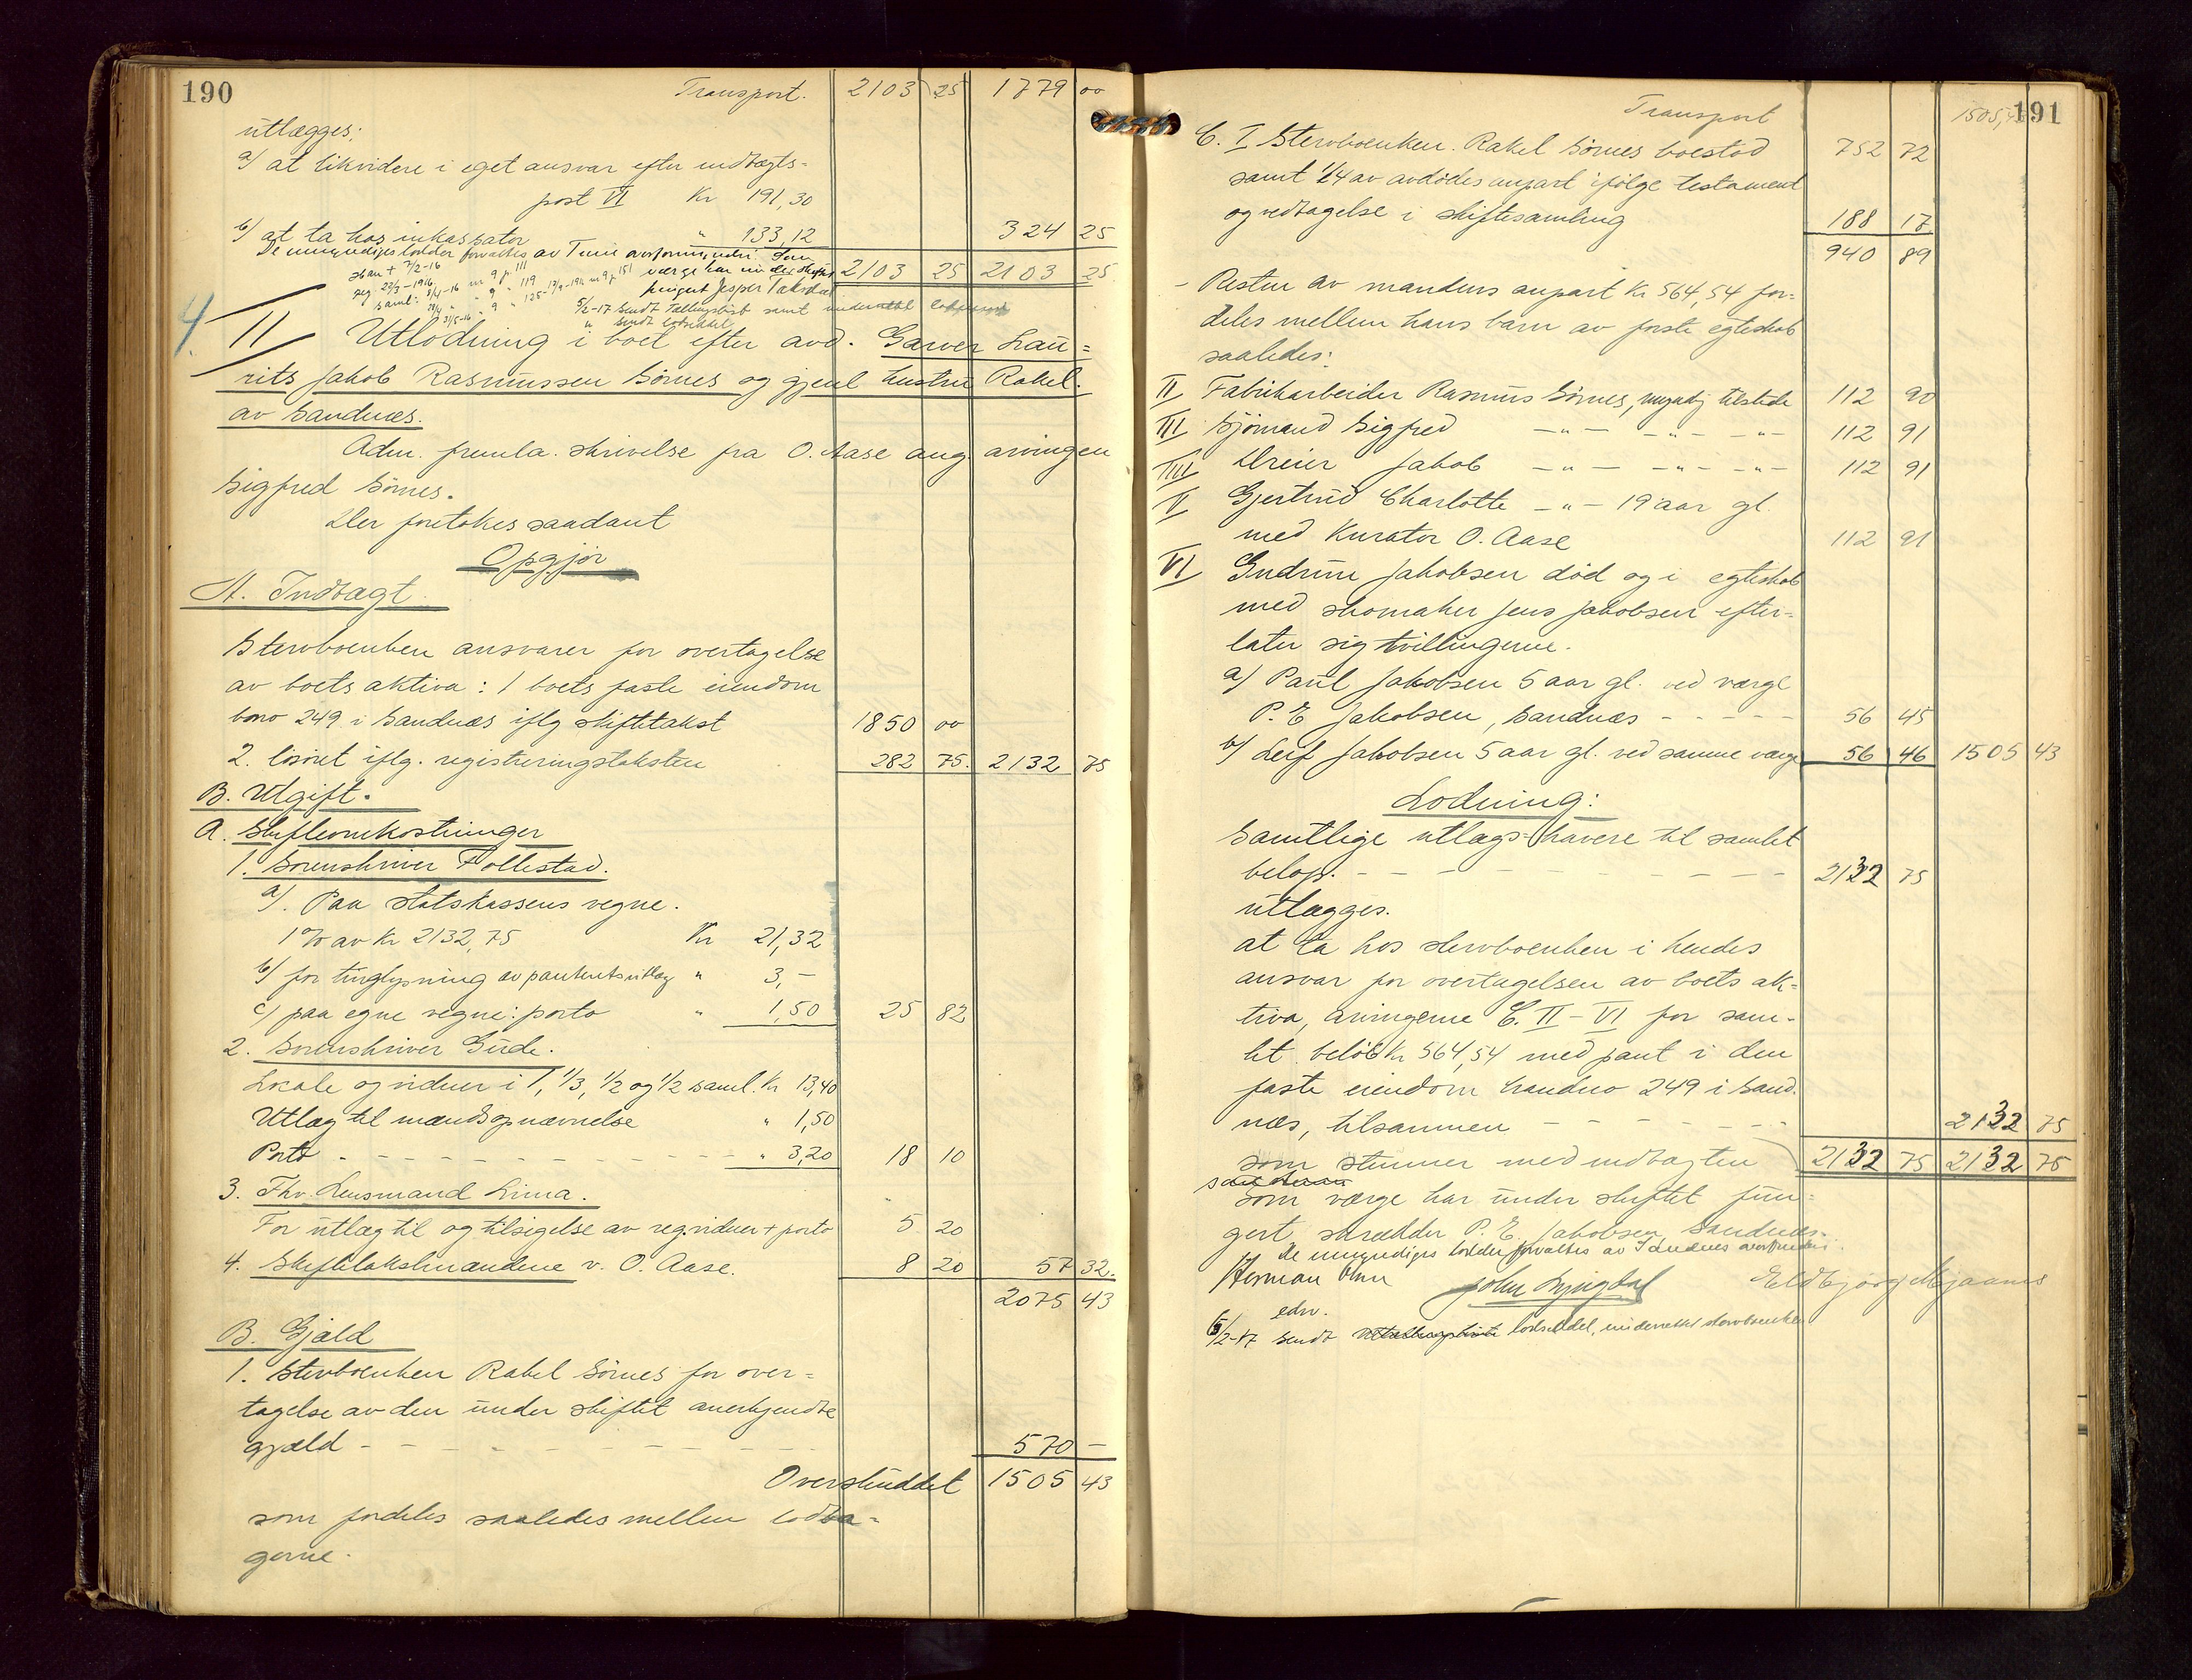 190
Transport. 2103 25 1779 00
utlægges:
a) at likvidere i eget ansvar efter indtægts-
post VI Kr 191,30
b) at ta hos inkassator " 133,12 324 25
De umyndiges lodder forvaltes av Time overformynderi. Som
2103 25 2103 25
værge har under skiftet
fungert Jesper Taksdal
5/2-17 sendt Tællingslist samt underrettet
" sendt lodseddel
4.
II Utlodning i boet efter avd. Garver Lau=
rits Jakob Rasmussen Sømes og gjenl. hustru Rakel.
av Sandnæs.
Adm. fremla. skrivelse fra O. Aase ang. arvingen
Sigfred Sømes.
Der foretokes saadant
Opgjør
A. Indtægt.
Stervboenken ansvarer for overtagelse
av boets aktiva: 1 boets faste eiendom
bno 249 i Sandnæs iflg skiftetakst 1850 00
2. løsøret iflg. registreringstaksten 282 75. 2132 75
B. Utgift.
A. Skifteomkostninger
1. Sorenskriver Follestad.
a). Paa statskassens vegne.
1 % av Kr 2132,75 Kr 21,32
b) for tinglysning av panteretsutlæg " 3,-
c) paa egne vegne: porto " 1,50 25 82
2. Sorenskriver Gude.
Lokale og vidner i 1, 1/3, 1/2 og 1/2 saml. Kr 13,40
Utlæg til mændsopnævnelse " 1,50
Porto - - - - - - - - - - - " 3,20 18 10
3. Fhv. Lensmand Lima.
For utlæg til og tilsigelse av reg.vidner + porto 5 20
4. Skiftetakstmændene v. O. Aase. 8 20 57 32.
2075 43
B. Gjæld
1. Stervboenken Rakel Sømes for over=
tagelse av den under skiftet anerkjendte
gjæld - - - - - - - - - - 570 -
Overskuddet 1505 43
som fordeles saaledes mellem lodta=
gerne.
191
Transport 1505,43
C. I Stervboenken. Rakel Sømes boeslod 752 72
samt 1/4 av avdødes anpart ifølge testament
og vedtagelse i skiftesamling 188 17
940 89
- Resten av mandens anpart Kr 564,54 for=
deles mellem hans barn av første egteskab
saaledes:
II Fabrikarbeider Rasmus Sømes, myndig tilstede 112 90
III Sjømand Sigfred -"- -"- -"- 112 91
IIII Dreier Jakob -"- -"- -"- 112 91
V Gjertrud Charlotte -"- 19 aar gl.
med Kurator O. Aase 112 91
VI Gudrun Jakobsen død og i egteskab
med skomaker Jens Jakobsen efter-
later sig tvillingerne.
a) Paul Jakobsen 5 aar gl. ved værge
P. E. Jakobsen, Sandnæs - - - - - 56 45
b) Leif Jakobsen 5 aar gl. ved samme værge 56 46 1505 43
Lodning:
Samtlige utlægs-havere til samlet
beløp. - - - - - - - - - - - 2132 75
utlægges.
at ta hos stervboenken i hendes
ansvar for overtagelsen av boets ak-
tiva, arvingerne C. II - VI for sam-
let beløb Kr 564,54 med pant i den
faste eiendom brandno 249 i Sand.
næs, tilsammen - - - - - - 2132 75
som stemmer med indtægten 2132 75 2132 75
Som værge har under skiftet fun=
gert skrædder P. E. Jakobsen Sandnæs.
De umyndiges lodder forvaltes av Sandnes overformderi.
Herman John Lyngdal Eldbjørg Mjaanes
edv.
5/2-17 sendt lodseddel, underrettet stervboenken